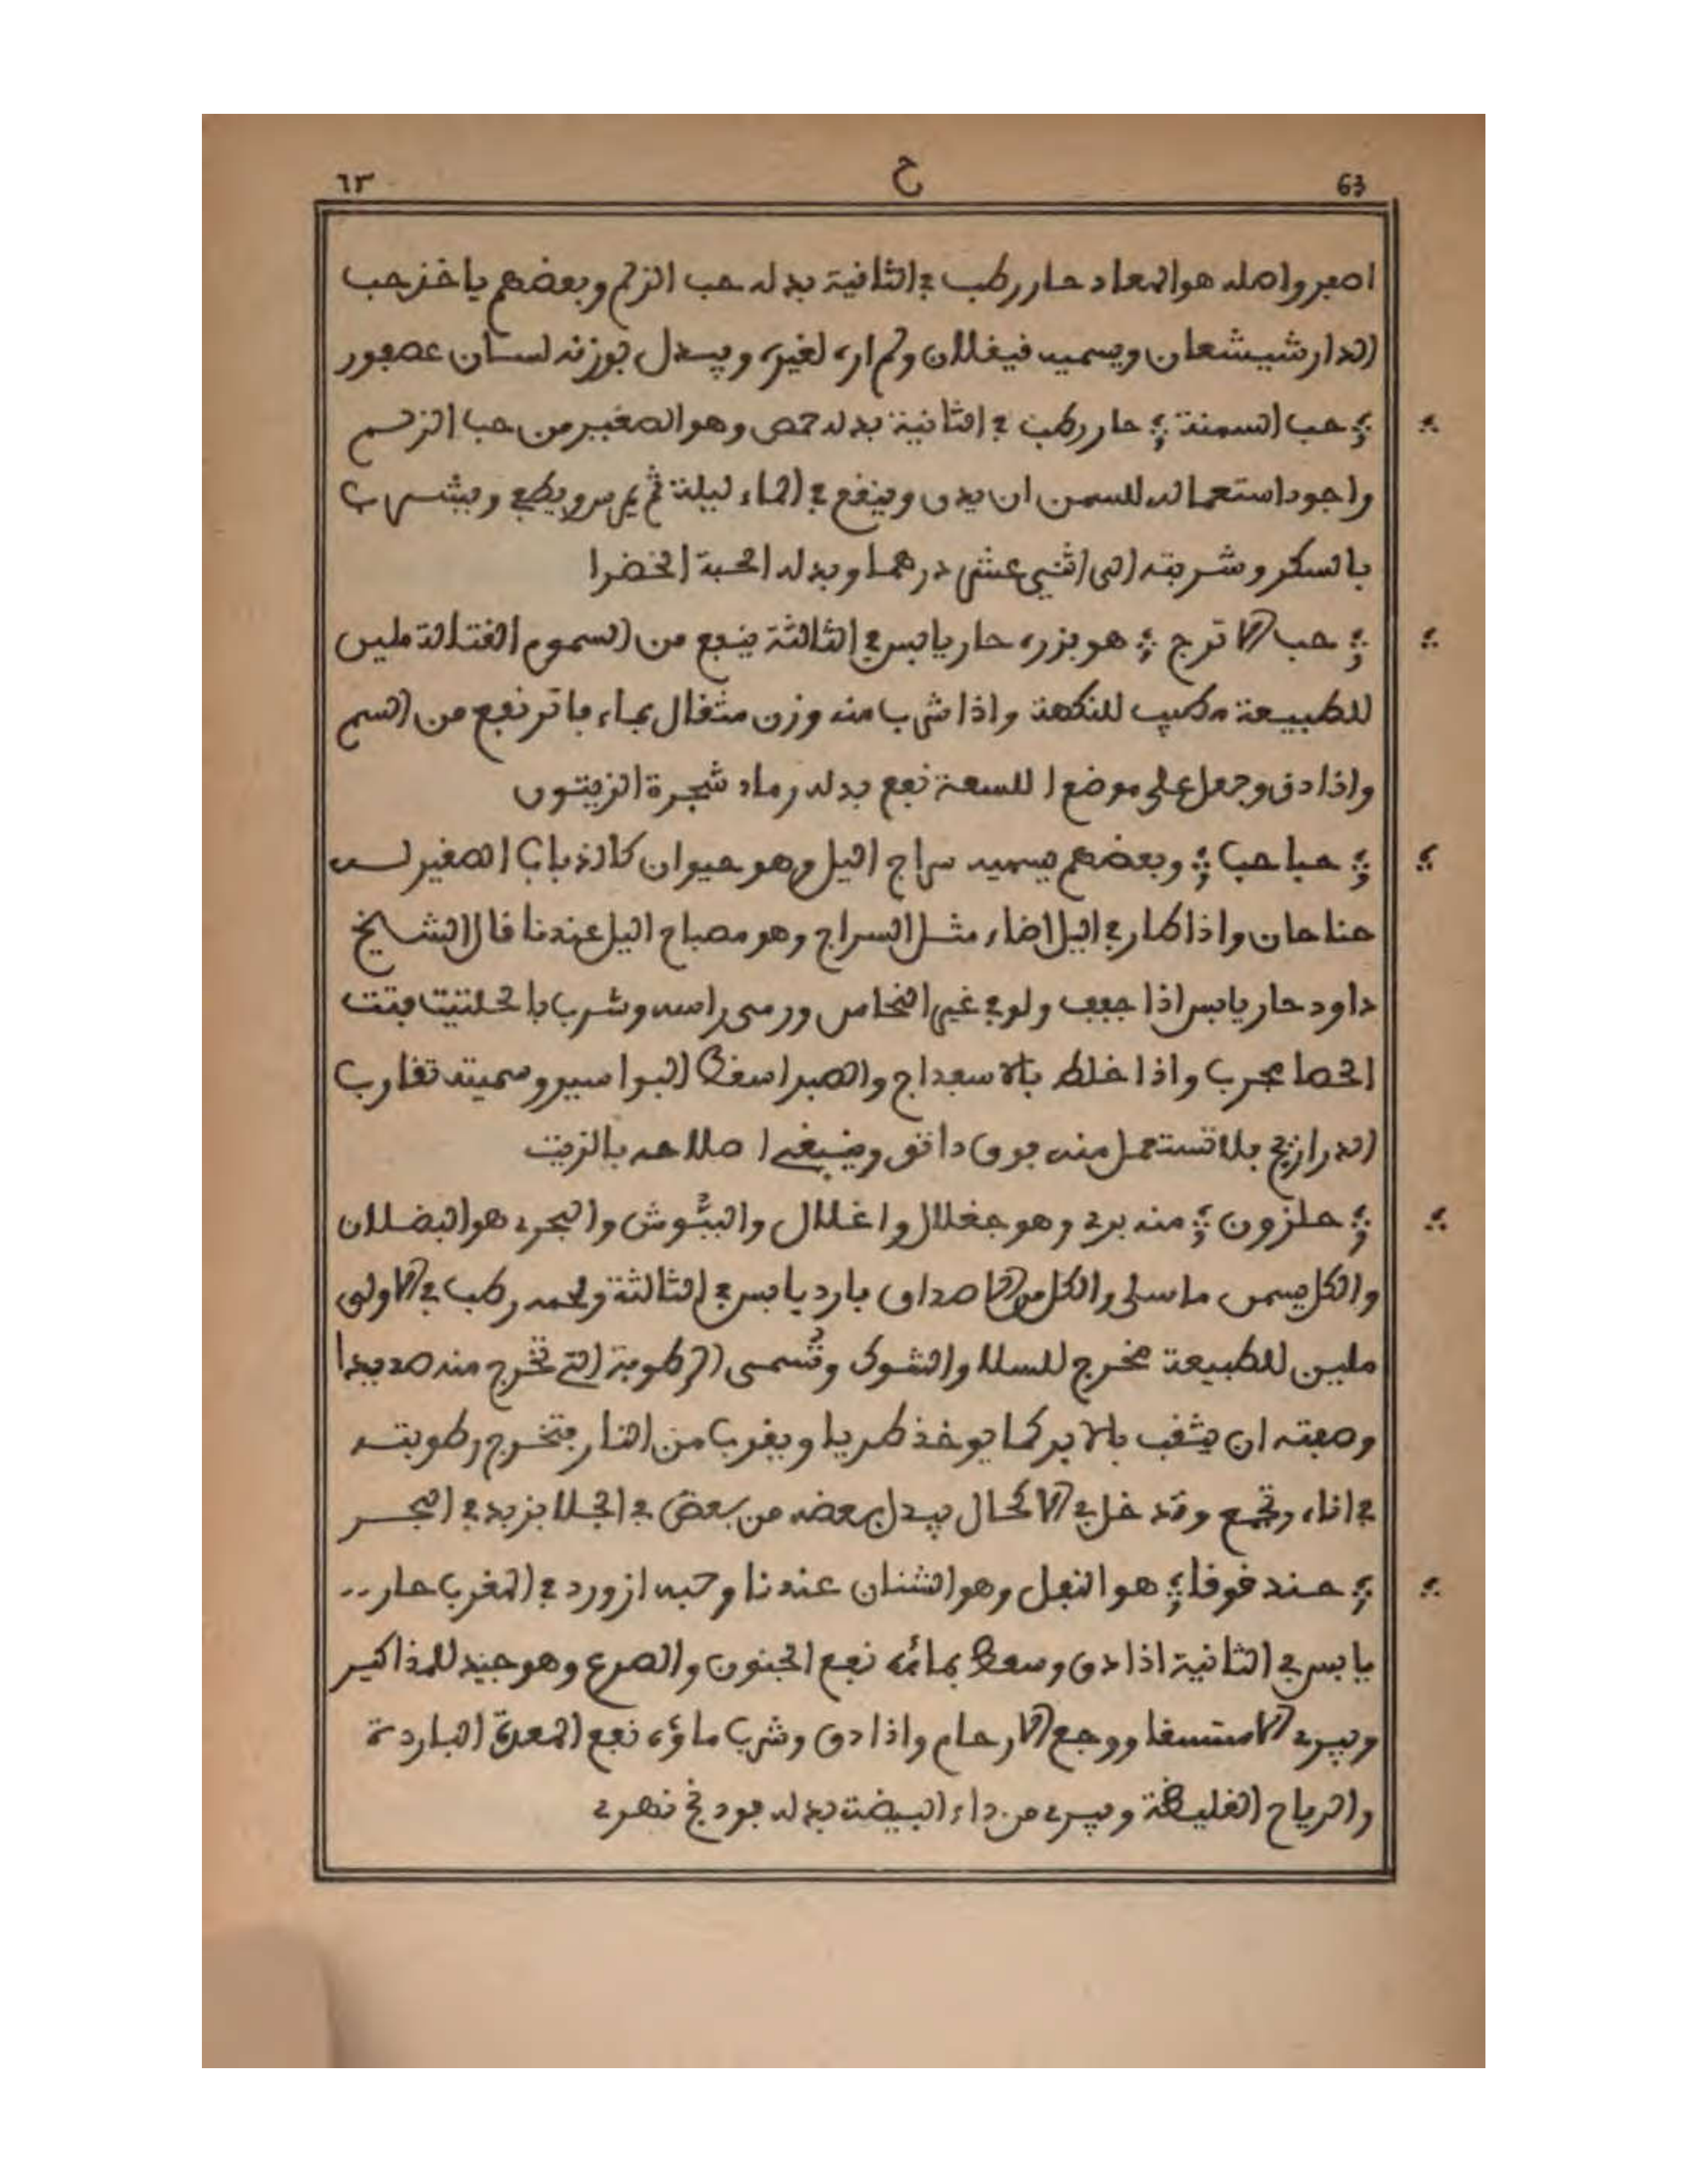 ٦٣ ح 63
اصفر واصله هو المعاد حار رطب في الثانية بدله حب الزلم وبعضهم ياخذ حب
الدار شيشعان ويسميه فيغلان ولم اره لغيره ويبدل بوزنه لسان عصفور
حب السمنة حار رطب في الثانية بدله حمص وهو الصغير من حب الزلم
واجود استعماله للسمن ان يدق وينقع في الماء ليلة ثم يمرس ويطبخ ويشرب
بالسكر وشربته الى اثني عشر درهما وبدله الحبة الخضرا
حب الاترج هو بزره حار يابس في الثالثة ينفع من السموم القتالة ملين
للطبيعة مطيب للنكهة واذا شرب منه وزن مثقال بماء فاتر نفع من السم
واذا دق وجعل على موضع اللسعة نفع بدله رماد شجرة الزيتون
حباحب وبعضهم يسميه سراج اليل وهو حيوان كالذباب الصغير لـه
جناحان واذا طار في اليل اضاء مثل السراج وهو مصباح اليل عندنا قال الشيخ
داود حار يابس اذا جفف ولو في غير النحاس ورمى راسه وشرب بالحلتيت فتت
الحصا مجرب واذا خلط بالاسفداج والصبر اسقط البواسير وسميته تقارب
الدراريح فلا تستعمل منه فوق دانق وينبغي اصلاحه بالزيت
حلزون منه بري وهو جغلال واغلال والببوش والبحري هو البضلان
والكل يسمى ماسلي والكل من الاصداف بارد يابس في الثالثة ولحمه رطب في الاولى
ملين للطبيعة مخرج للسلا والشوك وتسمى الرطوبة التي تخرج منه صديدا
وصفته ان يثقب بالابر كما يوخذ طريا ويقرب من النار فتخرج رطوبته
في اناء وتجمع وتدخل في الاكحال يبدل بعضه من بعض في الجلا بزبد في البحر
حندقوقا هو النفل وهو الشنان عندنا وحبه ازورد في المغرب حار ..
يابس في الثانية اذا دق وسعط بمائه نفع الجنون والصرع وهو جيد للمذاكير
ويبري الاستسقا ووجع الارحام واذا دق وشرب ماؤه نفع المعدة الباردة
والرياح الغليظة ويبري من داء البيضة بدله فودنج نهري